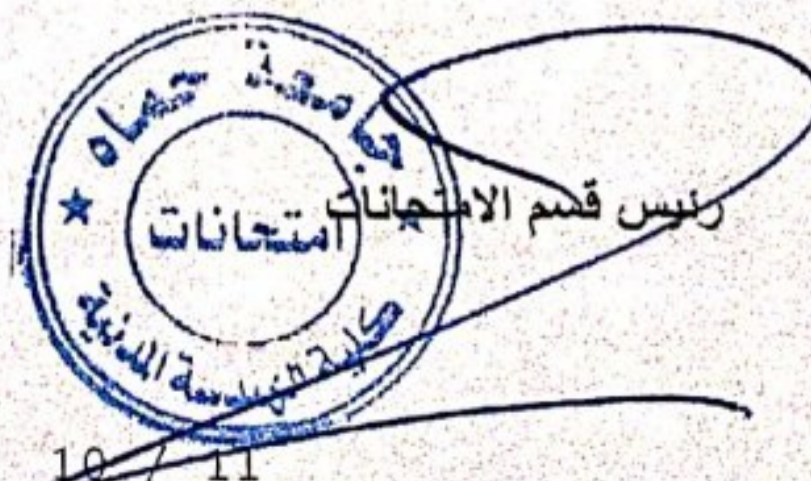 جامعة حماه
امتحانات
كلية الهندسة المدنية
رئيس قسم الامتحانات
10 / 11